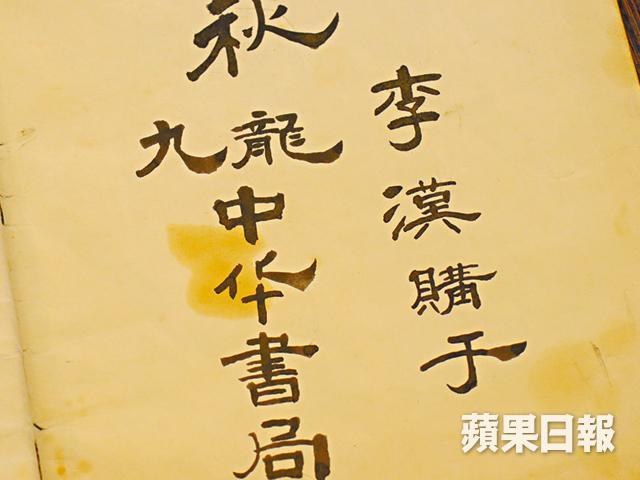 秋
李漢購于
九龍中华書局
蘋果日報